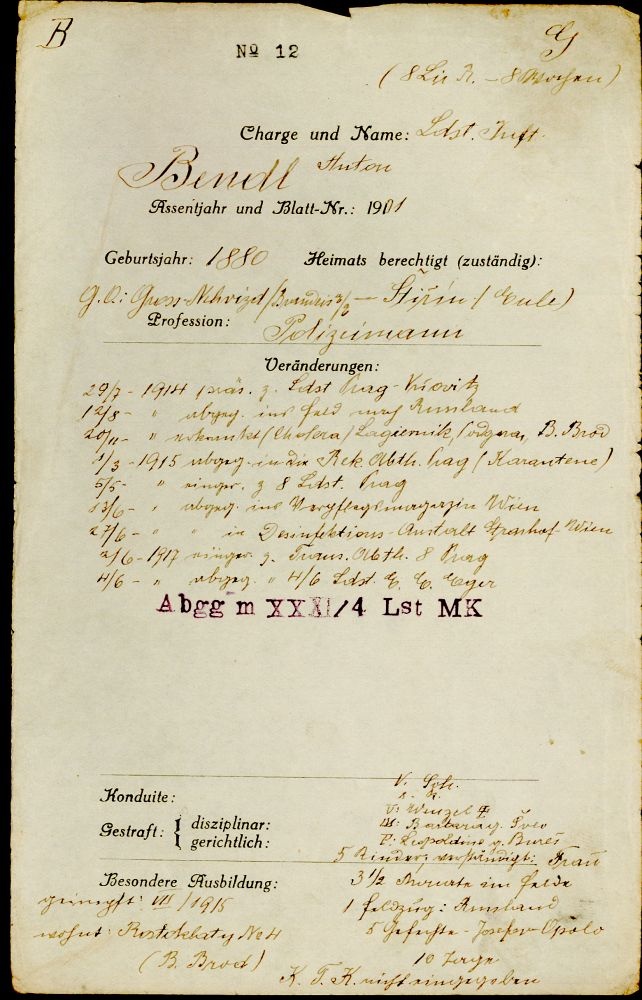 B G
№ 12
(8 Lir R. – 8 Wochen)
Charge und Name: Ldst. Inft.
Bendl Anton
Assentjahr und Blatt-Nr.: 1901
Geburtsjahr: 1880 Heimats berechtigt (zuständig):
G. O.: Gross-Nehvizd / Brandeis — Štiřin / Eule)
Profession: Polizeimann
Veränderungen:
29/7 - 1914 präs. z. Ldst Prag -
12/8 - " abgeg. ins Feld nach Russland
20/11 - " erkrankt (Cholera) Lagiewnik, Podgora, B. Brod
1/3 - 1915 abgeg. in die Rek. Abth. Prag (Karantene)
5/5 - " einger. z 8 Ldst. Prag
13/6 - " abgeg. ins Verpflegsmagazin Wien
27/6 - " " in Desinfektions-Anstalt Wien
2/6 - 1917 einger. z. Trans. Abth. 8 Prag
4/6 - " abgeg. " 4/6 Ldst. E. C. Eger
Abgg m XXXI/4 Lst MK
Konduite:
Gestraft: { disziplinar:
gerichtlich:
V: Wenzel
M: Barbara g.
F: Leopoldine g. Bureš
5 Kinder, verständigt: Frau
Besondere Ausbildung: 3 1/2 Monate im Felde
geimpft: VII / 1915 1 Feldzug: Russland
wohnt: Rostoklaty No 4 5 Gefechte - Josefow Opolo
(B. Brod) 10 Tage
K. T. K. nicht eingegeben